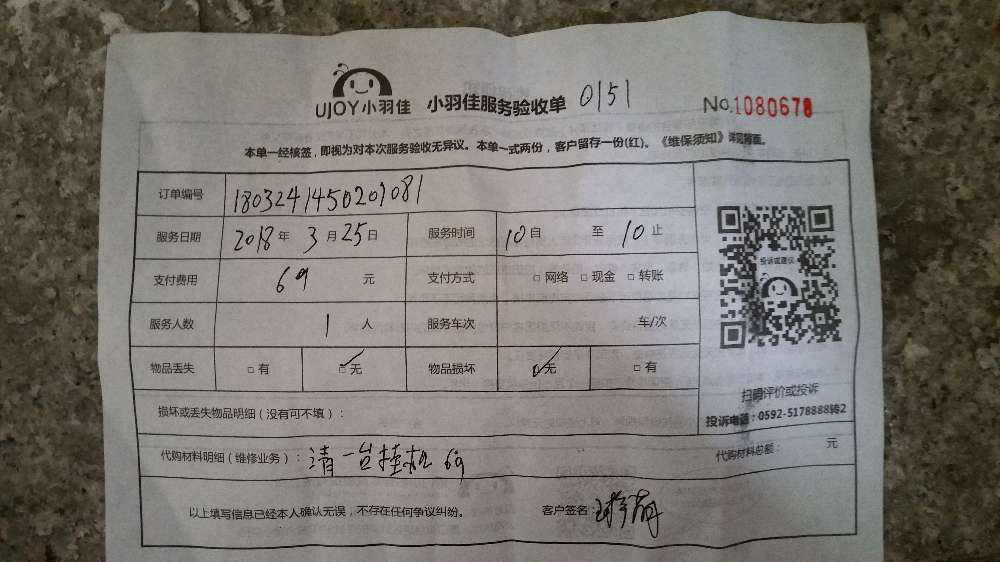 UJOY小羽佳 小羽佳服务验收单 0151 No.1080678
本单一经核签，即视为对本次服务验收无异议。本单一式两份，客户留存一份(红)。《维保须知》详见背面。
订单编号 1803241450209081
服务日期 2018年 3月25日 服务时间 10自 至 10止
支付费用 69 元 支付方式 □网络 □现金 □转账
投诉或建议
服务人数 1人 服务车次 车/次
物品丢失 □有 ☑无 物品损坏 ☑无 □有
扫码评价或投诉
损坏或丢失物品明细（没有可不填）：
投诉电话：0592-5178888转2
代购材料明细（维修业务）：清一台挂机69 代购材料总额： 元
以上填写信息已经本人确认无误，不存在任何争议纠纷。 客户签名：